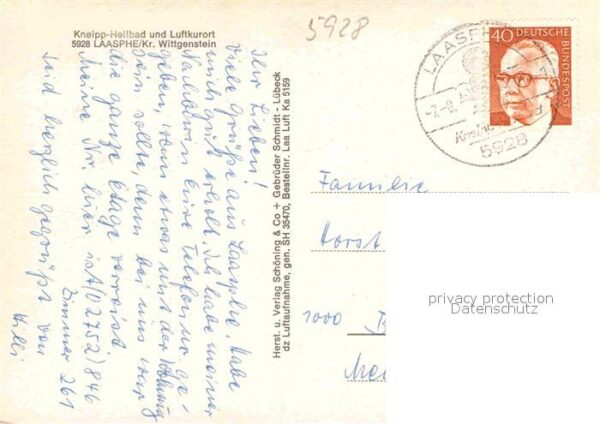 Kneipp-Heilbad und Luftkurort
5928 LAASPHE/Kr. Wittgenstein
5928
Ihr Lieben!
Viele Grüße aus Laasphe. Habe
mich gut erholt. Ich habe meiner
Nachbarin Eure Telefonnr. ge-
geben, wenn etwas mit der Wohnung
sein sollte, denn bei uns war
die ganze Etage verreist.
Meine Nr. hier ist 02752/846
Zimmer 261
Seid herzlich gegrüßt von
Herst. u. Verlag Schöning & Co + Gebrüder Schmidt - Lübeck
dz Luftaufnahme, gen. SH 35470, Bestellnr. Laa Luft Ka 5159
LAASPHE
5928
40 DEUTSCHE
BUNDESPOST
Familie
Horst
1000 B
privacy protection
Datenschutz